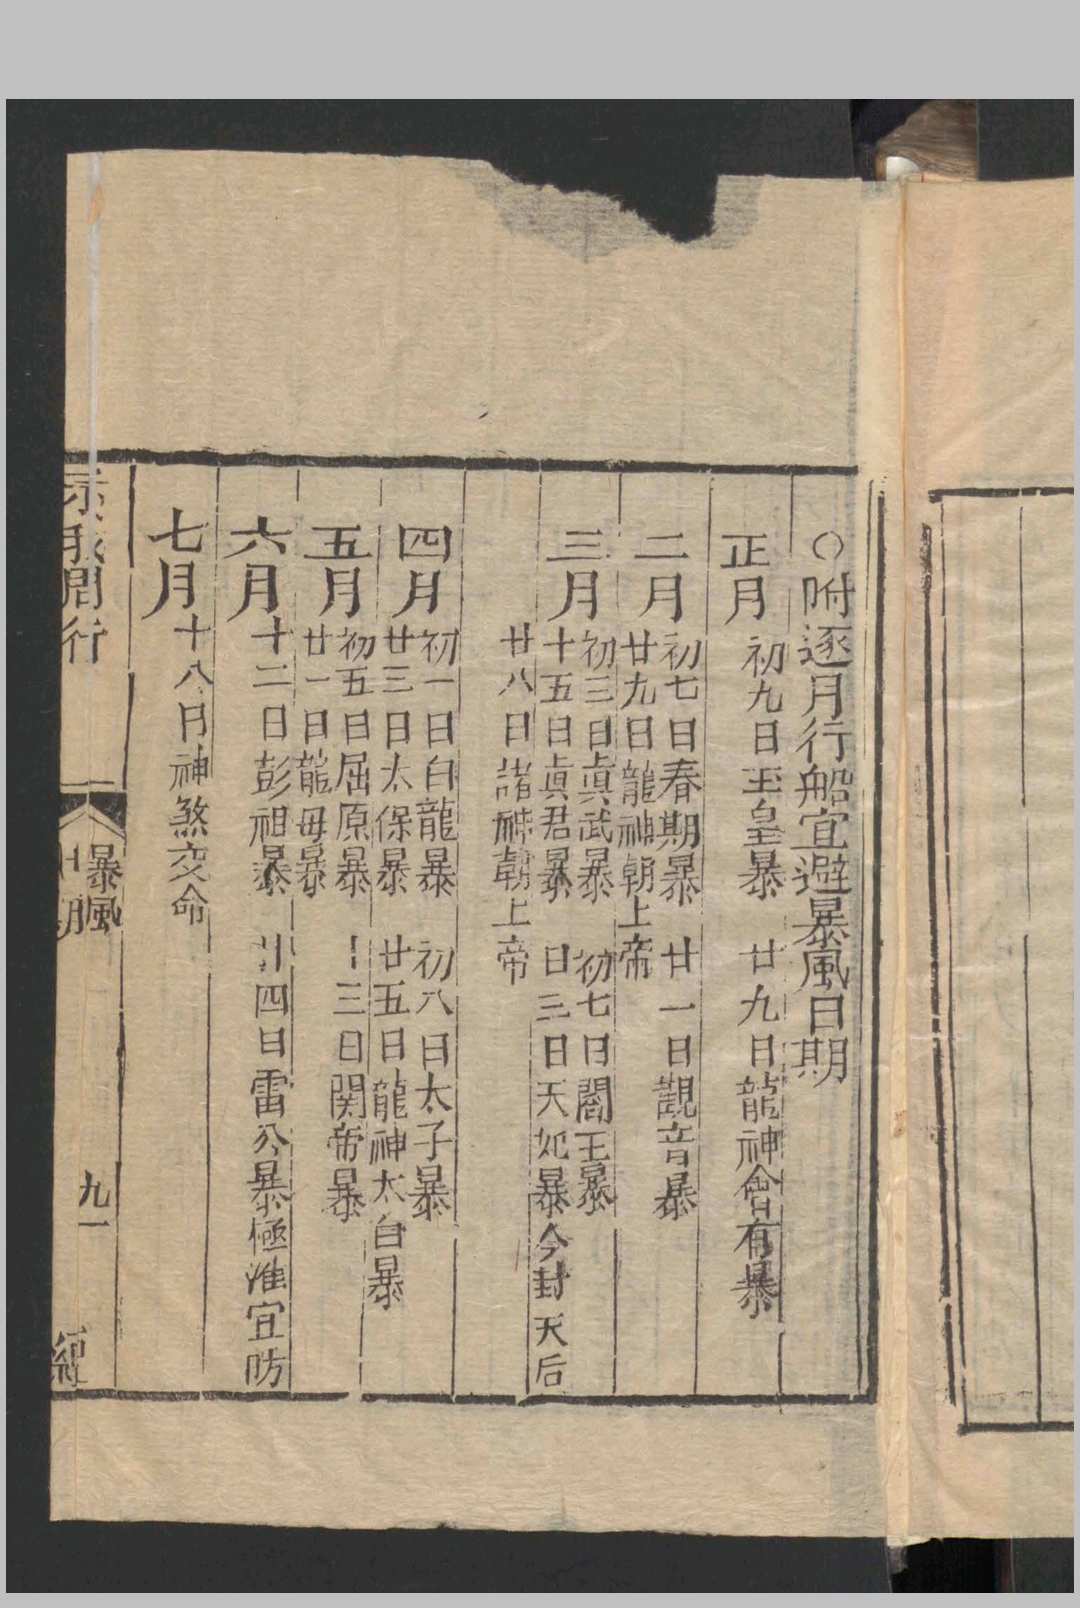 ○附逐月行船宜避暴風日期
正月 初九日玉皇暴 廿九日龍神會有暴
二月 初七日春期暴 廿一日觀音暴
廿九日龍神朝上帝
三月 初三日眞武暴 初七日閻王暴
十五日眞君暴 廿三日天妃暴今封天后
廿八日諸神朝上帝
四月 初一日白龍暴 初八日太子暴
廿三日太保暴 廿五日龍神太白暴
五月 初五日屈原暴 十三日関帝暴
廿一日龍毋暴
六月 十二日彭祖暴 廿四日雷公暴極準宜防
七月 十八日神煞交命
示我周行
暴風日期
九一
續